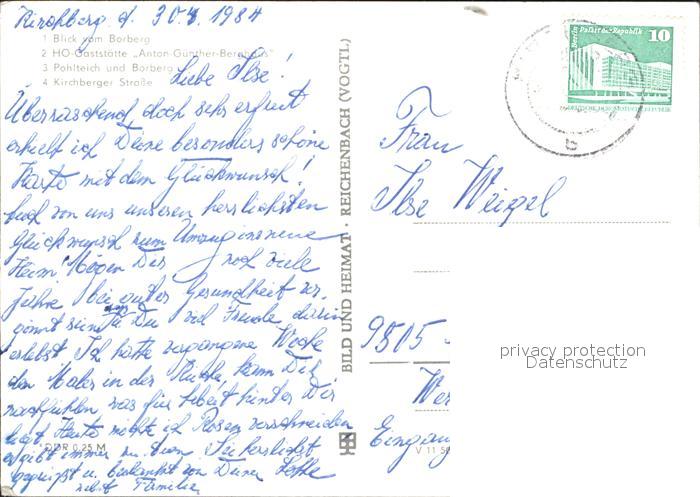 Kirchberg, d. 30.4.1984
1 Blick vom Borberg
2 HO-Gaststätte „Anton-Günther-Berghaus"
3 Pohlteich und Borberg
4 Kirchberger Straße
Liebe Ilse!
Überraschend, doch sehr erfreut
erhielt ich Deine besonders schöne
Karte mit dem Glückwunsch!
Auch von uns unseren herzlichsten
Glückwunsch zum Umzug ins neue
Heim! Mögen Dir noch viele
Jahre bei guter Gesundheit ver-
gönnt sein Du viel Freude darin
erlebst. Ich hatte vergangene Woche
den Maler in der Küche, kann Dir
nachfühlen, was für Arbeit hinter Dir
liegt. Heute möchte ich Rosen verschneiden
es gibt immer zu tun. Sei herzlichst
gegrüßt u. bedankt von Deiner
nebst Familie
DDR 0,25 M
BILD UND HEIMAT · REICHENBACH (VOGTL)
V 11 50
Berlin Palast der Republik
10
DEUTSCHE DEMOKRATISCHE REPUBLIK
b
Frau
Ilse Weigel
9805
privacy protection
Datenschutz
Wer
Eingang